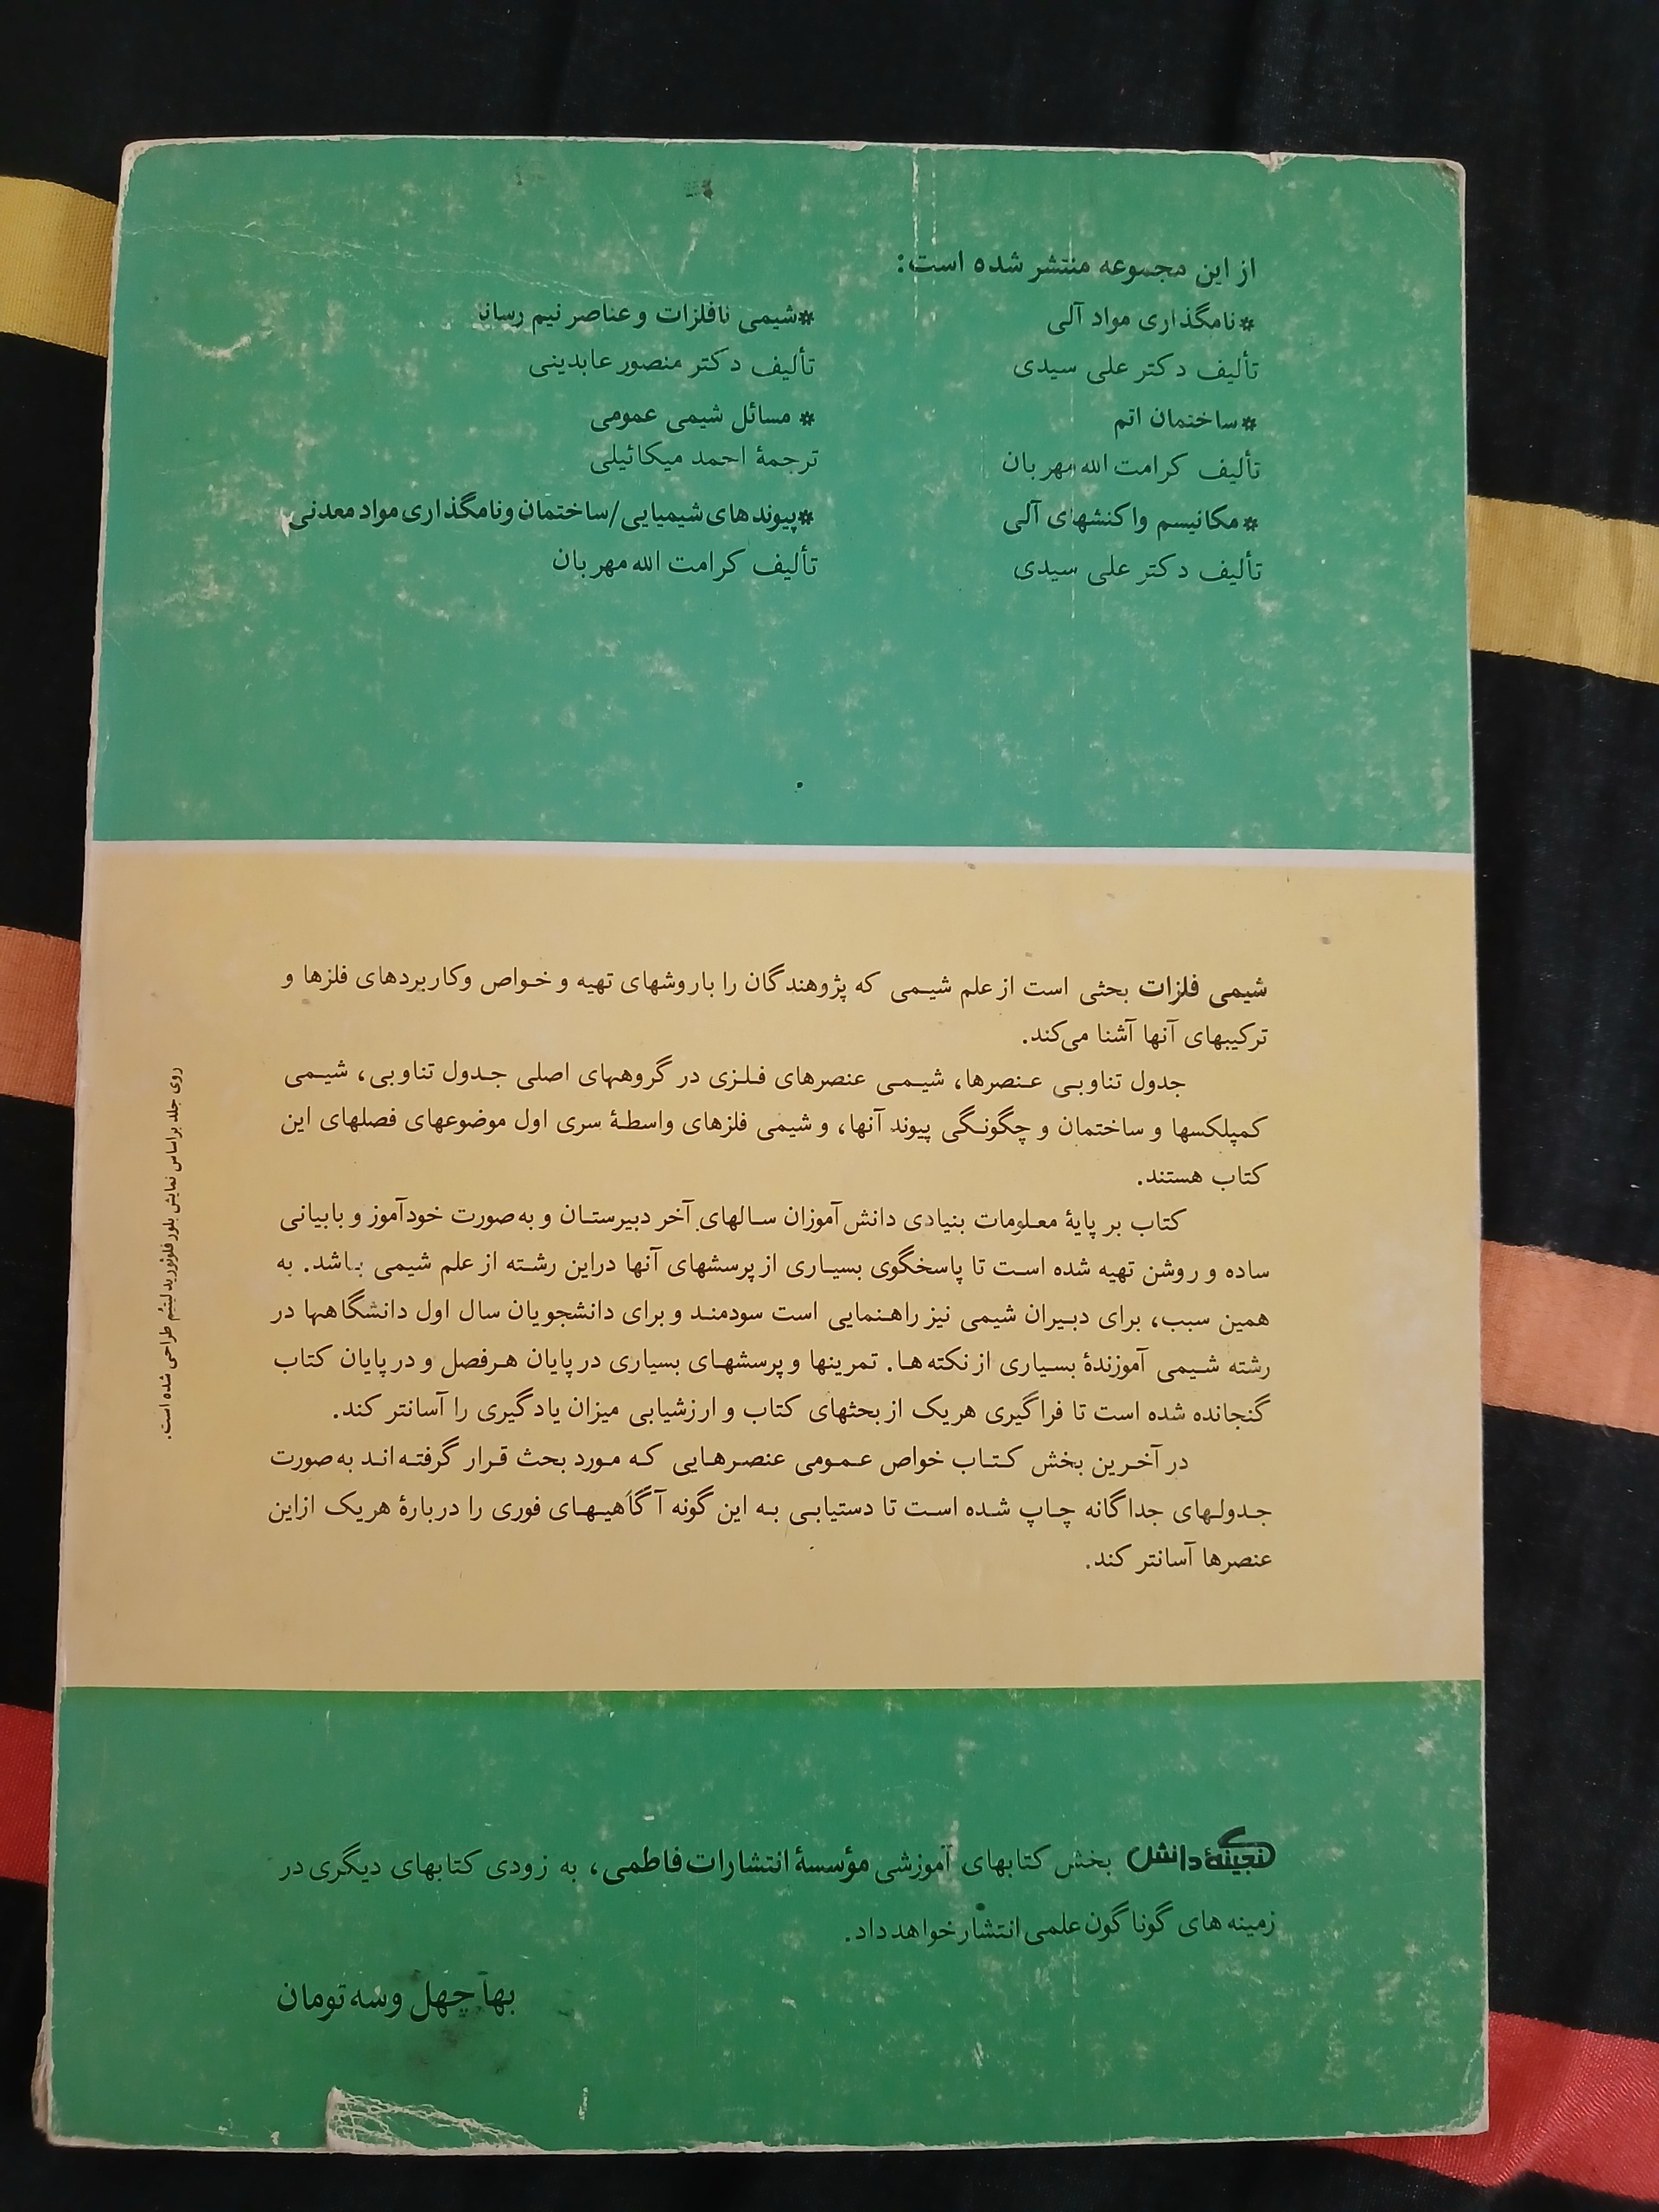 از این مجموعه منتشر شده است:
*نامگذاری مواد آلی
تألیف دکتر علی سیدی
*ساختمان اتم
تألیف کرامت الله مهربان
*مکانیسم واکنشهای آلی
تألیف دکتر علی سیدی
*شیمی نافلزات و عناصر نیم رسانا
تألیف دکتر منصور عابدینی
* مسائل شیمی عمومی
ترجمهٔ احمد میکائیلی
*پیوندهای شیمیایی/ساختمان ونامگذاری مواد معدنی
تألیف کرامت الله مهربان
شیمی فلزات بحثی است از علم شیمی که پژوهندگان را باروشهای تهیه و خواص وکاربردهای فلزها و
ترکیبهای آنها آشنا می‌کند.
جدول تناوبی عنصرها، شیمی عنصرهای فلزی در گروههای اصلی جدول تناوبی، شیمی
کمپلکسها و ساختمان و چگونگی پیوند آنها، و شیمی فلزهای واسطهٔ سری اول موضوعهای فصلهای این
کتاب هستند.
کتاب بر پایهٔ معلومات بنیادی دانش‌آموزان سالهای آخر دبیرستان و به‌صورت خودآموز و بابیانی
ساده و روشن تهیه شده است تا پاسخگوی بسیاری از پرسشهای آنها دراین رشته از علم شیمی باشد. به
همین سبب، برای دبیران شیمی نیز راهنمایی است سودمند و برای دانشجویان سال اول دانشگاهها در
رشته شیمی آموزندهٔ بسیاری از نکته‌ها. تمرینها و پرسشهای بسیاری در پایان هرفصل و در پایان کتاب
گنجانده شده است تا فراگیری هریک از بحثهای کتاب و ارزشیابی میزان یادگیری را آسانتر کند.
در آخرین بخش کتاب خواص عمومی عنصرهایی که مورد بحث قرار گرفته‌اند به‌صورت
جدولهای جداگانه چاپ شده است تا دستیابی به این گونه آگاهیهای فوری را دربارهٔ هریک ازاین
عنصرها آسانتر کند.
روی جلد براساس نمایش بلور فلوئورید لیتیُم طراحی شده است.
گنجینهٔ دانش بخش کتابهای آموزشی مؤسسهٔ انتشارات فاطمی، به زودی کتابهای دیگری در
زمینه های گوناگون علمی انتشار خواهد داد.
بها چهل وسه تومان